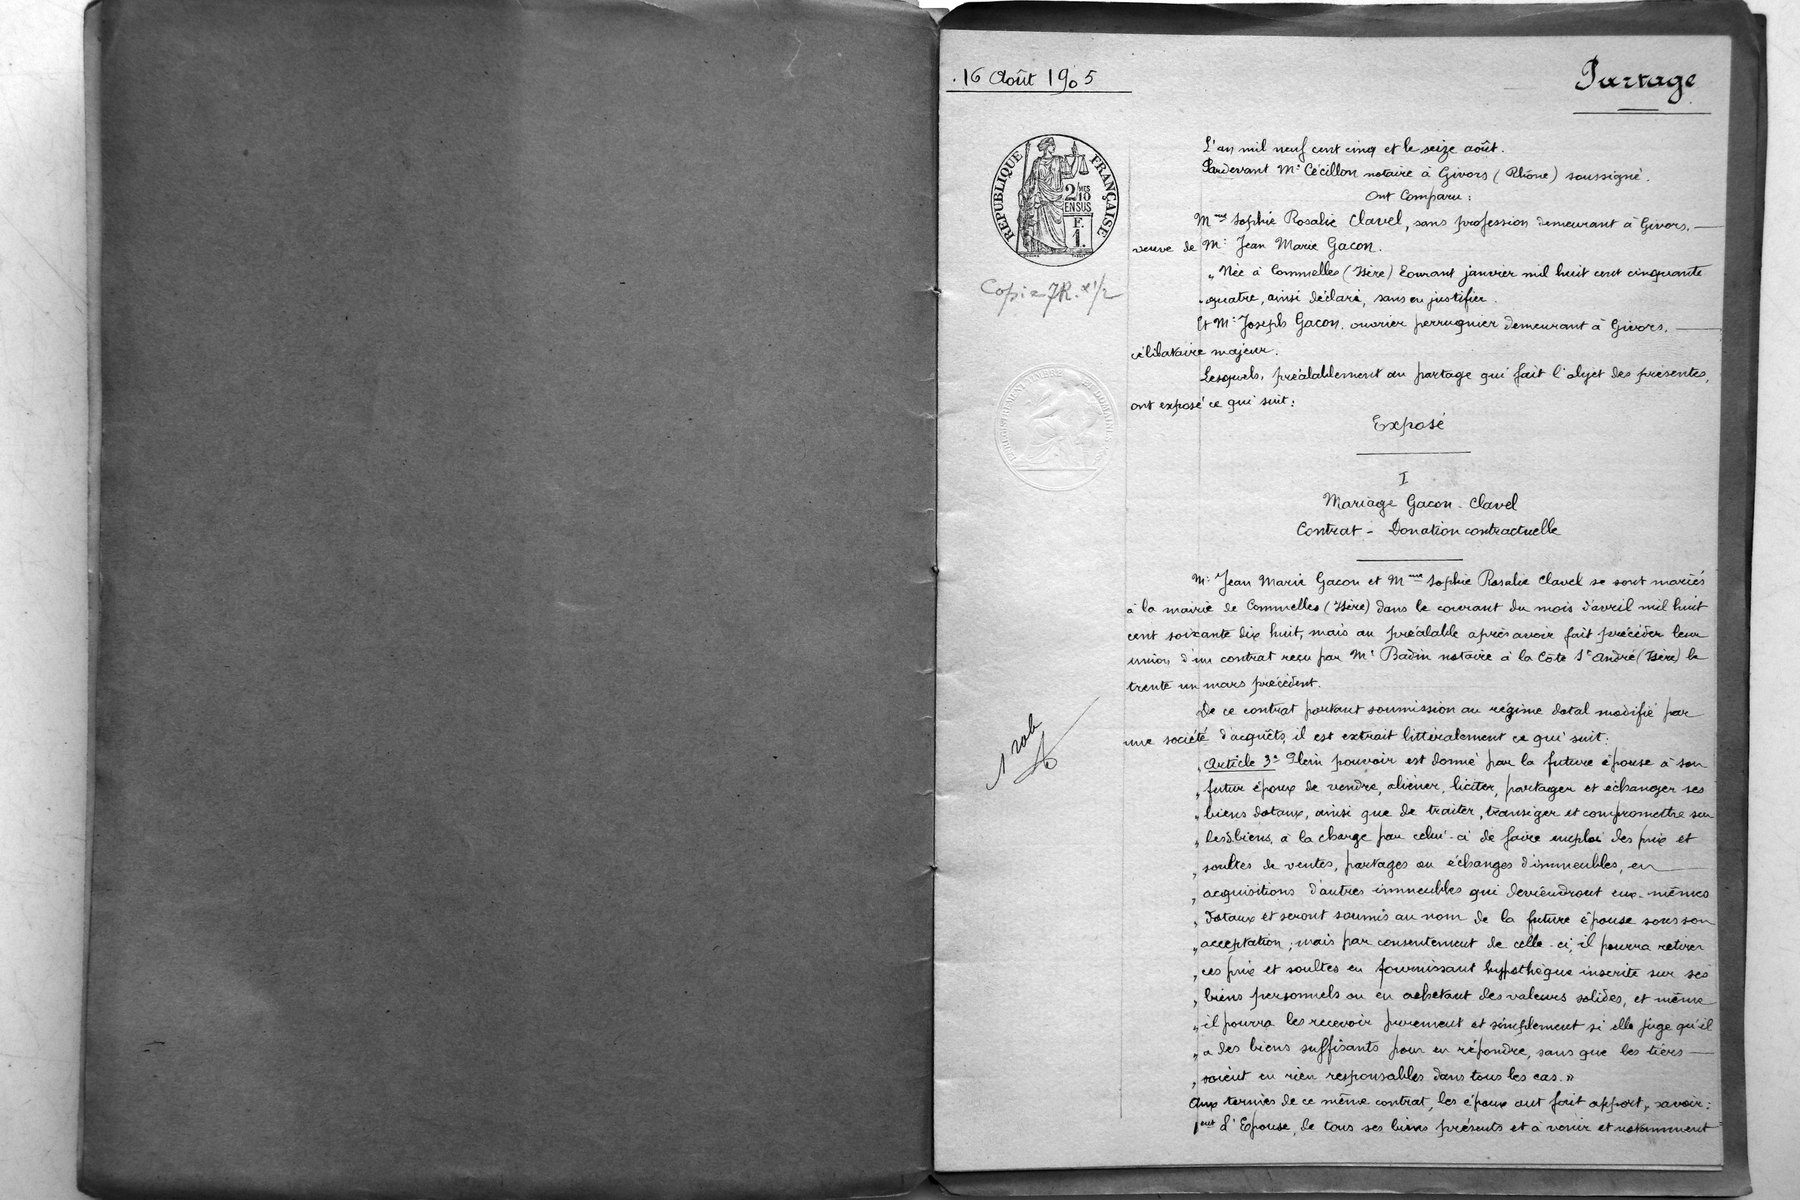 16 Août 1905
Partage
RÉPUBLIQUE FRANÇAISE
2/10 MES
EN SUS
F.
1.
Copie 7R. x 1/2
L'an mil neuf cent cinq et le seize août.
Pardevant Me Cécillon notaire à Givors (Rhône) soussigné.
Ont Comparu :
Mme Sophie Rosalie Clavel, sans profession demeurant à Givors,
veuve de Mr Jean Marie Gacon.
" Née à Commelles (Isère) Courant janvier mil huit cent cinquante
" quatre, ainsi déclaré, sans en justifier.
Et Mr Joseph Gacon, ouvrier perruquier demeurant à Givors,
célibataire majeur.
Lesquels, préalablement au partage qui fait l'objet des présentes,
ont exposé ce qui suit :
Exposé
I
Mariage Gacon - Clavel
Contrat - Donation contractuelle
Mr Jean Marie Gacon et Mme Sophie Rosalie Clavel se sont mariés
à la mairie de Commelles (Isère) dans le courant du mois d'avril mil huit
cent soixante dix huit, mais au préalable après avoir fait précéder leur
union d'un contrat reçu par Me Badin notaire à la Côte St André (Isère) le
trente un mars précédent.
De ce contrat portant soumission au régime dotal modifié par
une société d'acquêts, il est extrait littéralement ce qui suit :
1 rôle
" Article 3e Plein pouvoir est donné par la future épouse à son
" futur époux de vendre, aliéner, liciter, partager et échanger ses
" biens dotaux, ainsi que de traiter, transiger et compromettre sur
" lesd. biens, à la charge par celui-ci de faire emploi des prix et
" soultes de ventes, partages ou échanges d'immeubles, en
" acquisitions d'autres immeubles qui deviendront eux-mêmes
" dotaux et seront soumis au nom de la future épouse sous son
" acceptation ; mais par consentement de celle-ci, il pourra retirer
" ces prix et soultes en fournissant hypothèque inscrite sur ses
" biens personnels ou en achetant des valeurs solides, et même
" il pourra les recevoir purement et simplement si elle juge qu'il
" a des biens suffisants pour en répondre, sans que les tiers
" soient en rien responsables dans tous les cas. "
Aux termes de ce même contrat, les époux ont fait apport, savoir :
1ent L'Epouse, de tous ses biens présents et à venir et notamment